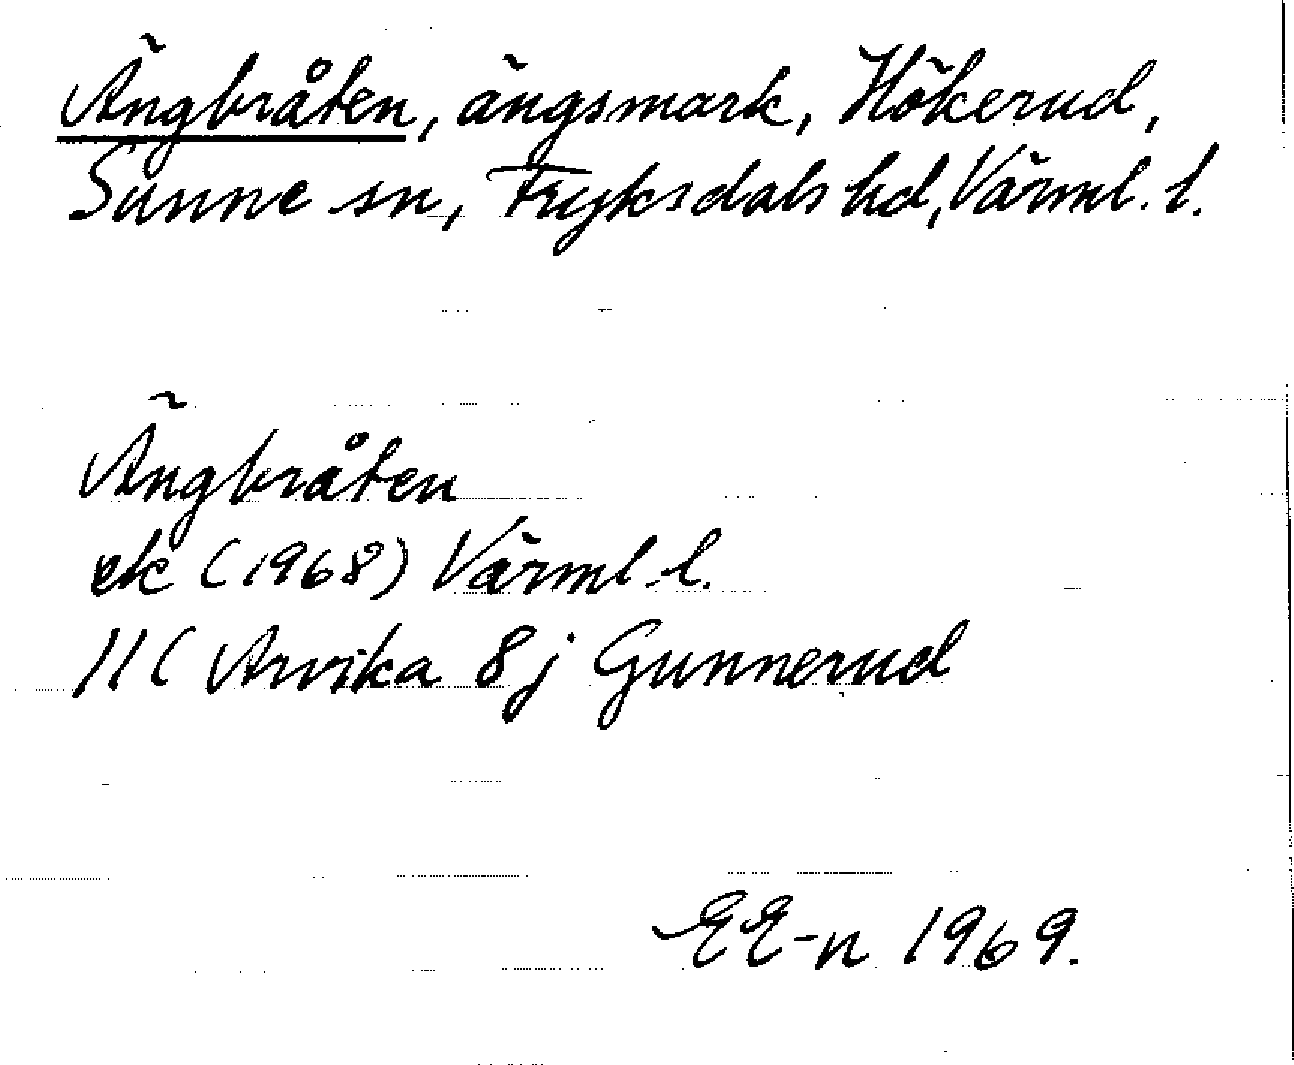 Ängbråten, ängsmark, Hökerud,
Sunne sn, Fryksdals hd, Värml. l.
Ängbråten
ek (1968) Värml l.
11C Arvika 8j Gunnerud
EE-n 1969.